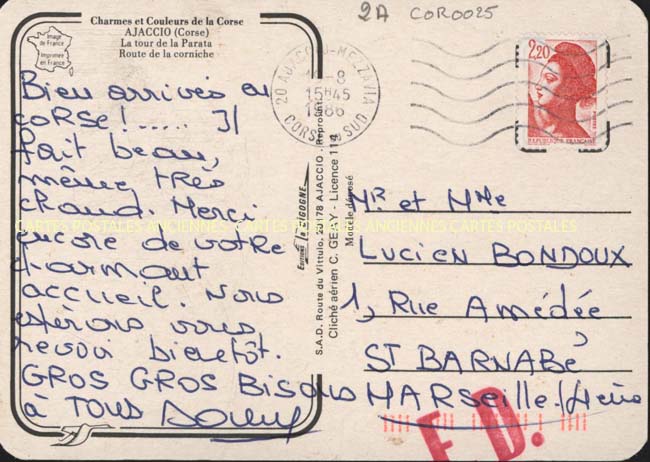 2A COR0025
Charmes et Couleurs de la Corse
AJACCIO (Corse)
La tour de la Parata
Route de la corniche
Image de France
Imprimée en France
Bien arrivés en
corse !..... Il
fait beau,
même très
chaud. Merci
encore de votre
charmant
accueil. Nous
espérons vous
revoir bientôt.
GROS GROS BISOUS
à TOUS
20 AJACCIO-MEZZAVIA
-8
15H45
1986
CORSE DU SUD
2,20
REPUBLIQUE FRANÇAISE
Editions la CIGOGNE
S.A.D. Route du Vittulo, 20178 AJACCIO - Reproduct.
Cliché aérien C. GESSY - Licence 114
Modèle déposé
Mr et Mme
LUCIEN BONDOUX
1, Rue Amédée
ST BARNABÉ
MARSEILLE
E.D.
CARTES POSTALES ANCIENNES CARTES POSTALES ANCIENNES CARTES POSTALES